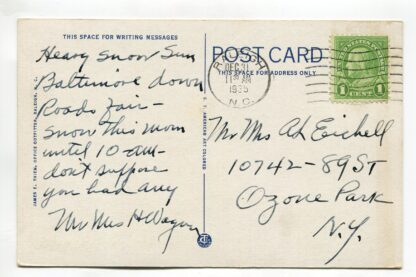 THIS SPACE FOR WRITING MESSAGES
Heavy snow Sun
Baltimore down
Roads fair-
snow this morn
until 10-am-
don't suppose
you had any
Mr Mrs H Wagon
POST CARD
THIS SPACE FOR ADDRESS ONLY
RALEIGH
DEC 31
11 AM
1935
N.C.
1 CENT 1
Mr Mrs A L Eichell
10742-89 St
Ozone Park
N.Y.
JAMES E. THIEM, OFFICE OUTFITTERS, RALEIGH, N. C.
C. T. AMERICAN ART COLORED